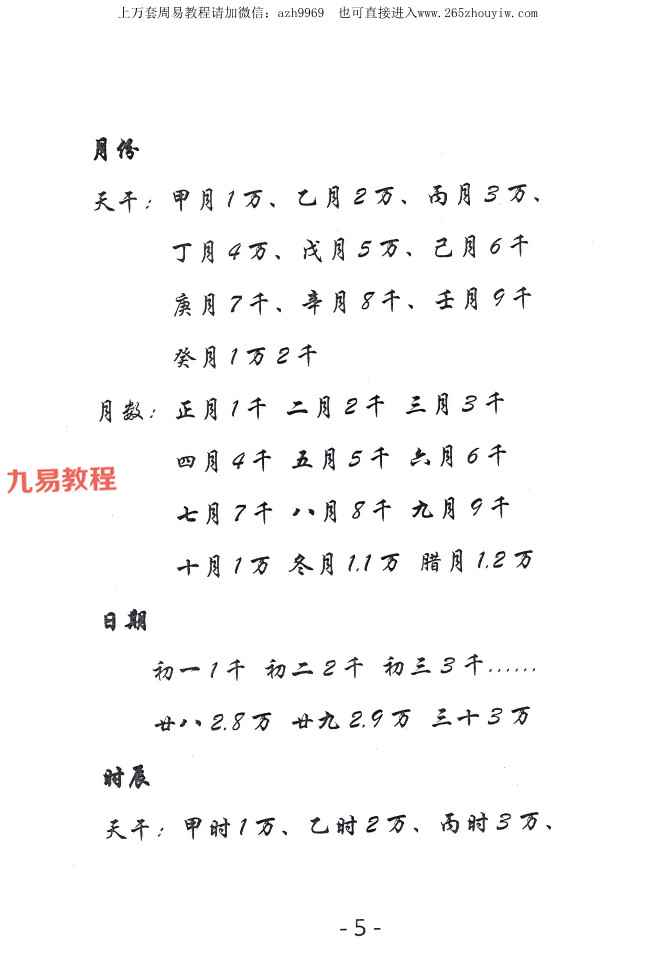 上万套周易教程请加微信：azh9969 也可直接进入www.265zhouyiw.com
月份
天干：甲月1万、乙月2万、丙月3万、
丁月4万、戊月5万、己月6千
庚月7千、辛月8千、壬月9千
癸月1万2千
月数：正月1千 二月2千 三月3千
四月4千 五月5千 六月6千
九易教程
七月7千 八月8千 九月9千
十月1万 冬月1.1万 腊月1.2万
日期
初一1千 初二2千 初三3千……
廿八2.8万 廿九2.9万 三十3万
时辰
天干：甲时1万、乙时2万、丙时3万、
- 5 -